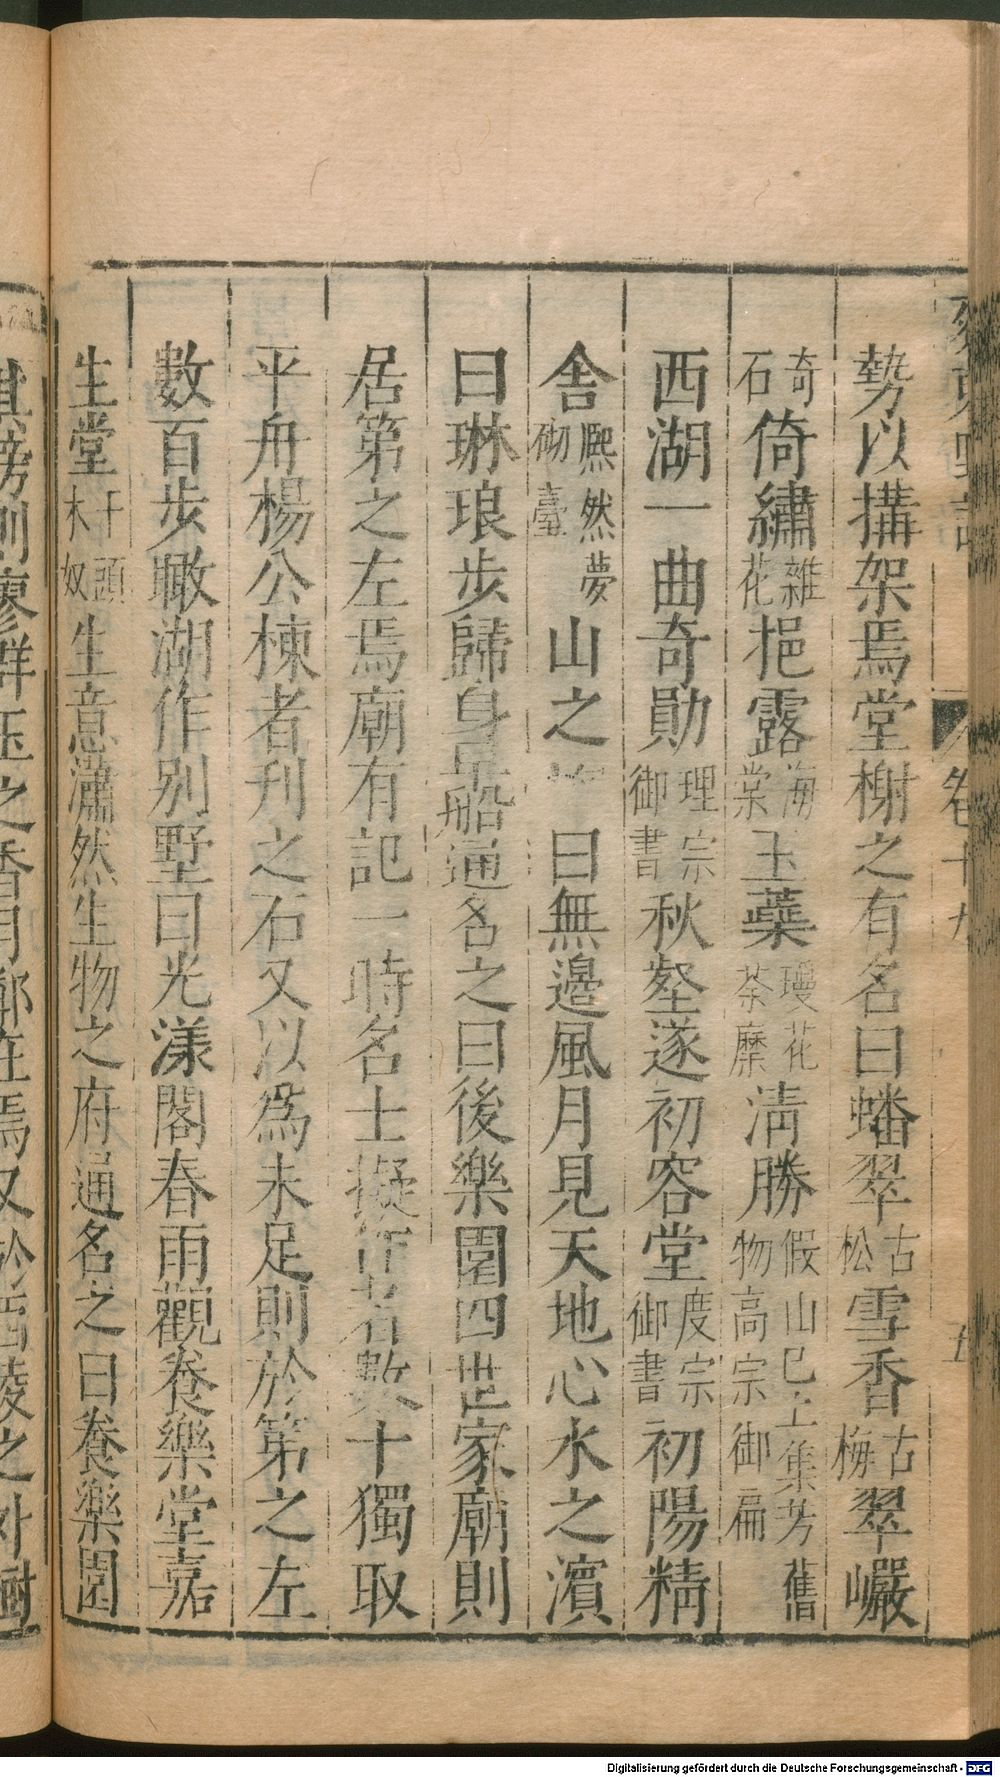 勢以搆架焉堂榭之有名曰蟠翠古松雪香古梅翠巖
奇石倚繡雜花挹露海棠玉蘂瓊花荼蘼清勝假山已上集芳舊物高宗御扁
西湖一曲奇勛理宗御書秋壑遂初容堂度宗御書初陽精
舍熈然夢砌臺山之曰無邊風月見天地心水之濱
曰琳琅步歸身早船通名之曰後樂園四世家廟則
居第之左焉廟有記一時名士擬作者數十獨取
平舟楊公棟者刊之石又以爲未足則於第之左
數百步瞰湖作别墅曰光漾閣春雨觀養樂堂嘉
生堂千頭木奴生意瀟然生物之府通名之曰養樂園
其傍則廖群玉之香月鄰在焉又於西陵之外樹
卷十九
五
Digitalisierung gefördert durch die Deutsche Forschungsgemeinschaft - DFG